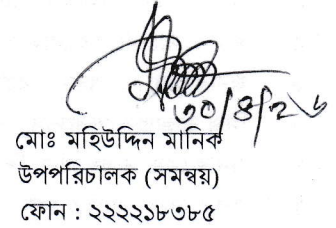 ৩০/৪/২৬
মোঃ মহিউদ্দিন মানিক
উপপরিচালক (সমন্বয়)
ফোন : ২২২২১৮৩৮৫